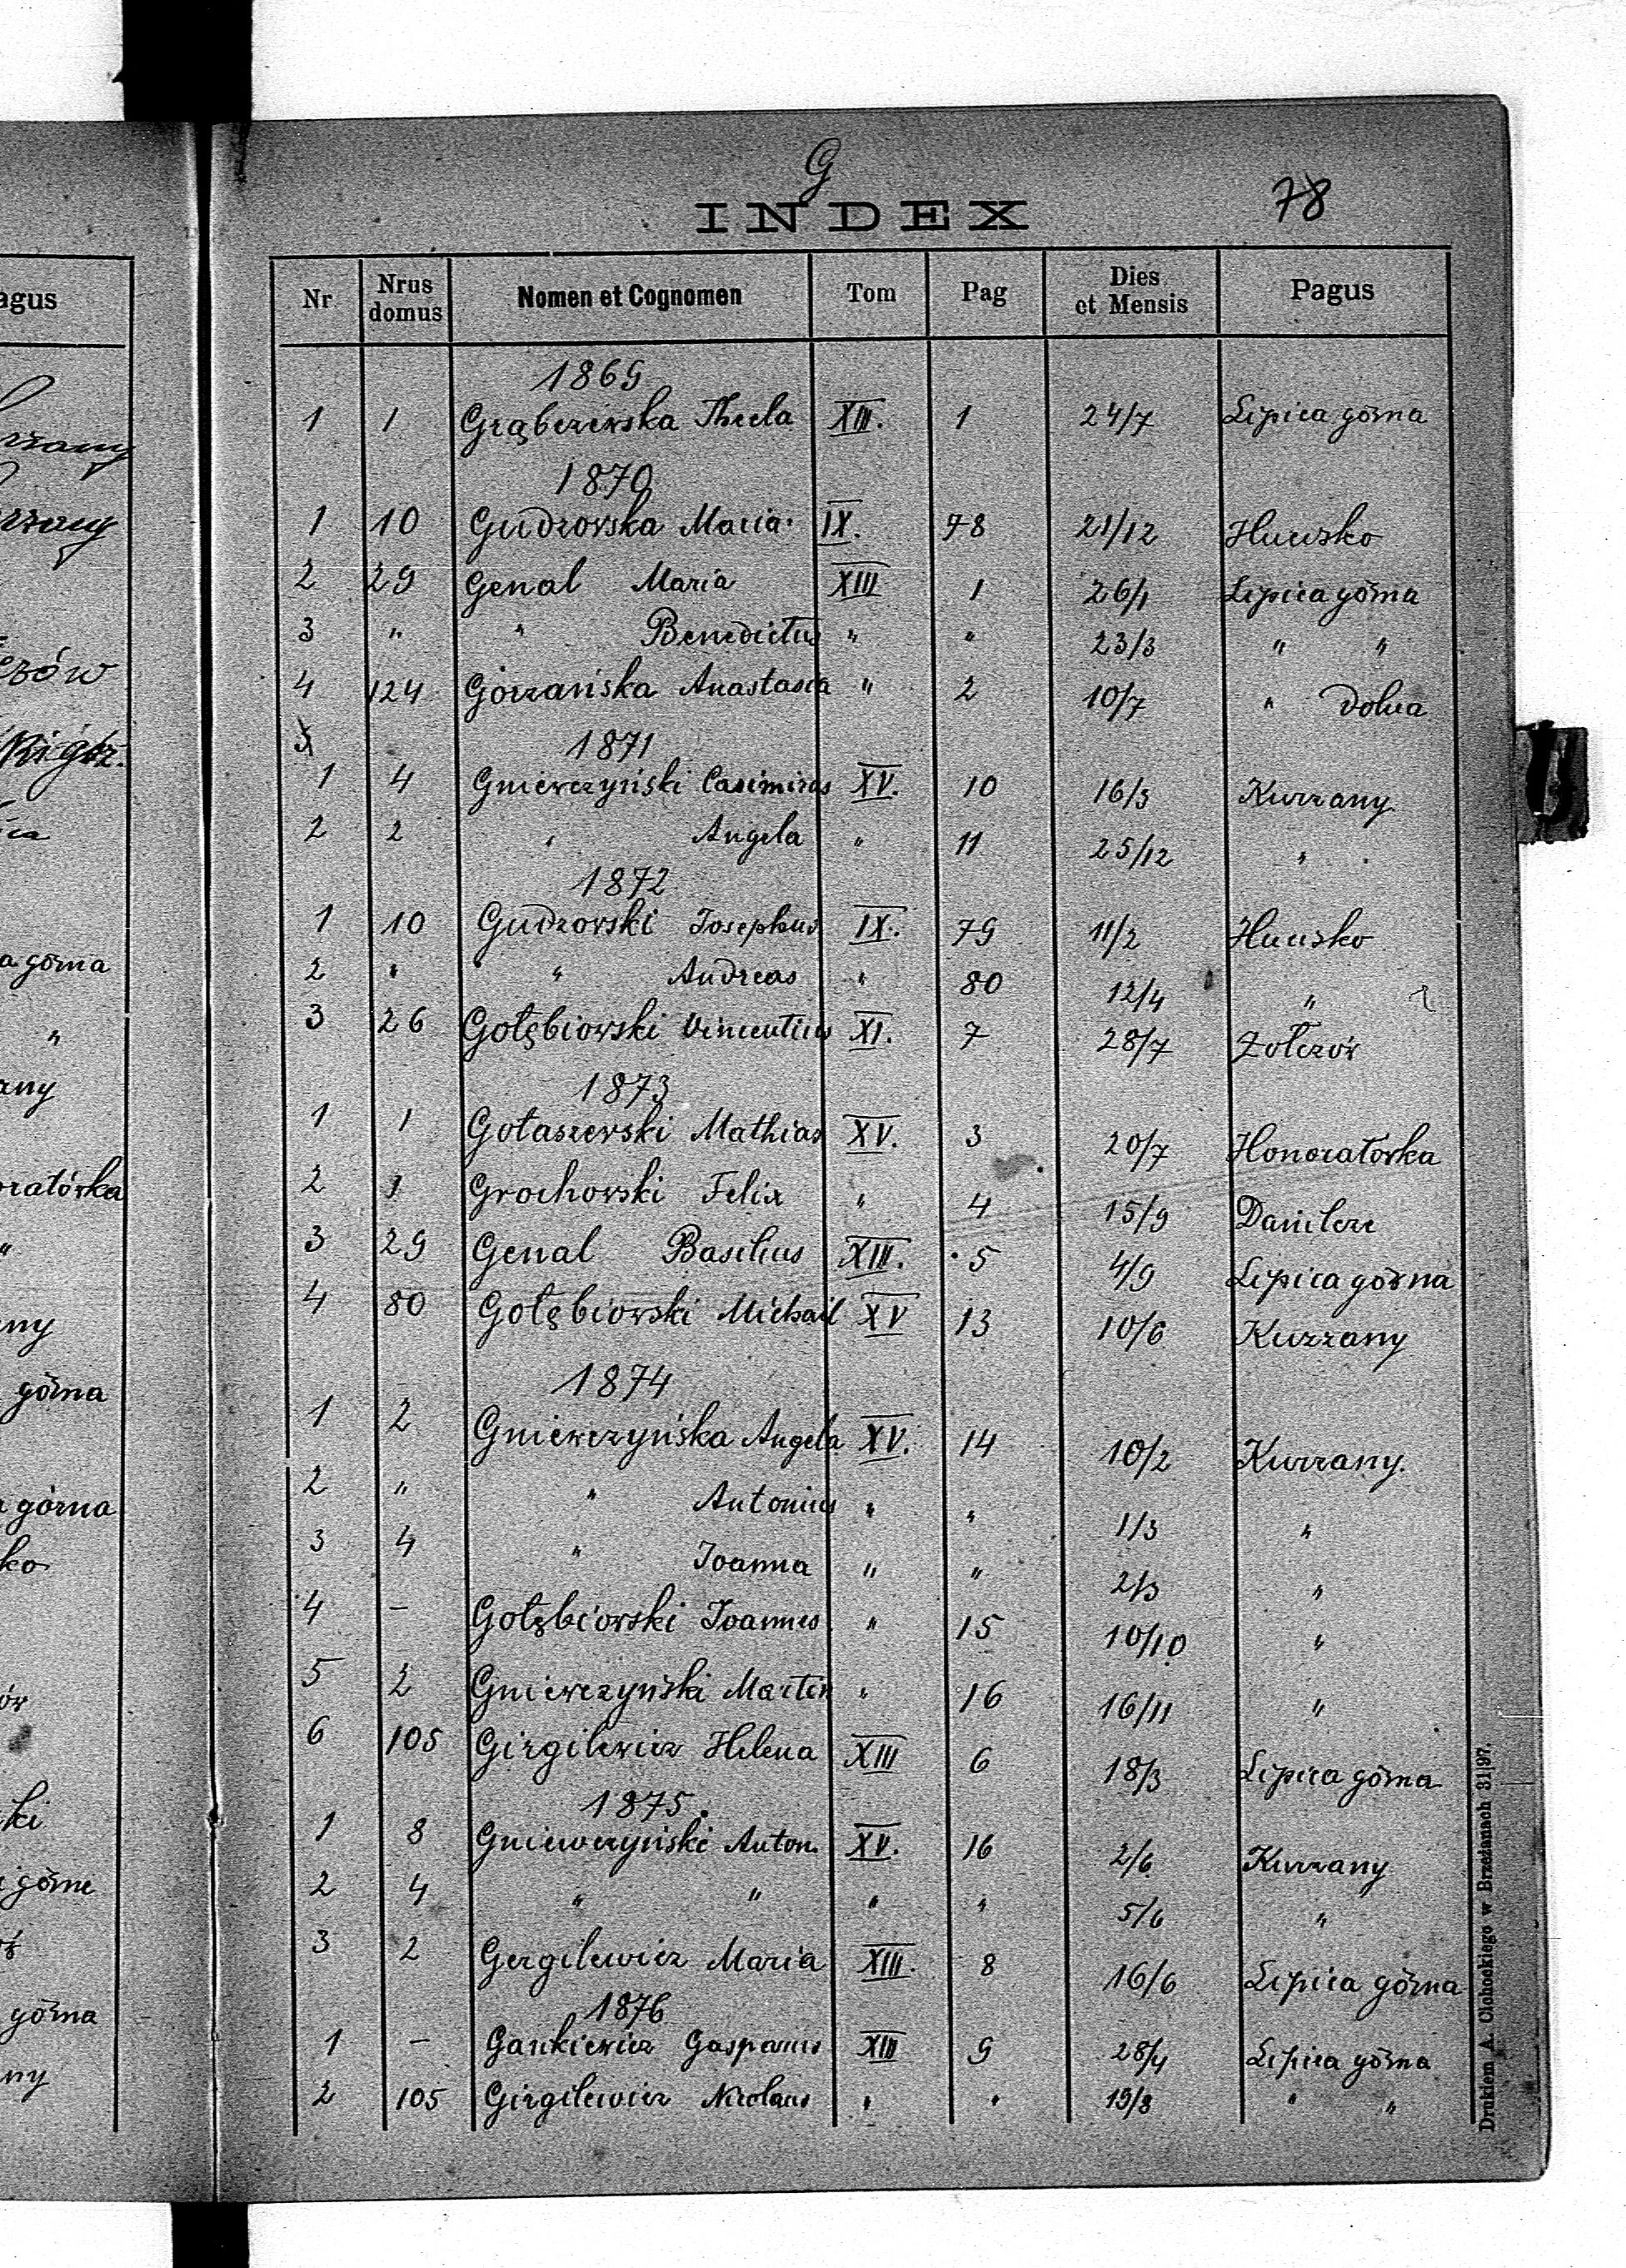 agus
rzany
rzany
czów
a górna
"
any
oratórka
"
ny
górna
a górna
ko
ów
ki
górne
górna
ny
G
INDEX
78
Nr Nrus domus Nomen et Cognomen Tom Pag Dies et Mensis Pagus
1869
1 1 Grąbczewska Thecla XIII. 1 24/7 Lipica górna
1870
1 10 Gudzovska Maria IX. 78 21/12 Hucisko
2 29 Genal Maria XIII 1 26/1 Lipica górna
3 " " Benedictus " " 23/3 " "
4 124 Górzańska Anastasia " 2 10/7 " Dolna
1871
1 4 Gniewczyński Casimirus XV. 10 16/3 Kurzany
2 2 " Angela " 11 25/12 "
1872
1 10 Gudzovski Josephus IX. 79 11/2 Hucisko
2 " " Andreas " 80 12/4 "
3 26 Gołębiowski Vincentius XI. 7 28/7 Żołczów
1873
1 1 Gołaszewski Mathias XV. 3 20/7 Honoratówka
2 1 Grochowski Felix " 4 15/9 Danilcze
3 29 Genal Basilius XIII. 5 4/9 Lipica górna
4 80 Gołębiowski Michail XV 13 10/6 Kurzany
1874
1 2 Gniewczyńska Angela XV. 14 10/2 Kurzany.
2 " " Antonius " " 1/3 "
3 4 " Joanna " " 2/3 "
4 – Gołębiowski Joannes " 15 10/10 "
5 2 Gniewczyński Martin " 16 16/11 "
6 105 Girgilewicz Helena XIII 6 18/3 Lipica górna
1875.
1 8 Gniewczyński Anton. XV. 16 2/6 Kurzany
2 4 " " " " 5/6 "
3 2 Gergilewicz Maria XIII. 8 16/6 Lipica górna
1876
1 – Gankiewicz Gasparus XIII 9 28/4 Lipica górna
2 105 Girgilewicz Nicolaus " " 19/8 " "
Drukiem A. Clohockiego w Brzeżanach 31|97.